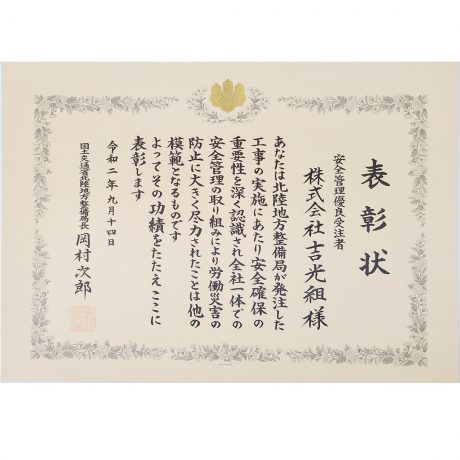 表彰状
安全管理優良受注者
株式会社吉光組様
あなたは北陸地方整備局が発注した
工事の実施にあたり安全確保の
重要性を深く認識され全社一体での
安全管理の取り組みにより労働災害の
防止に大きく尽力されたことは他の
模範となるものです
よってその功績をたたえここに
表彰します
令和二年九月十四日
国土交通省北陸地方整備局長 岡村次郎